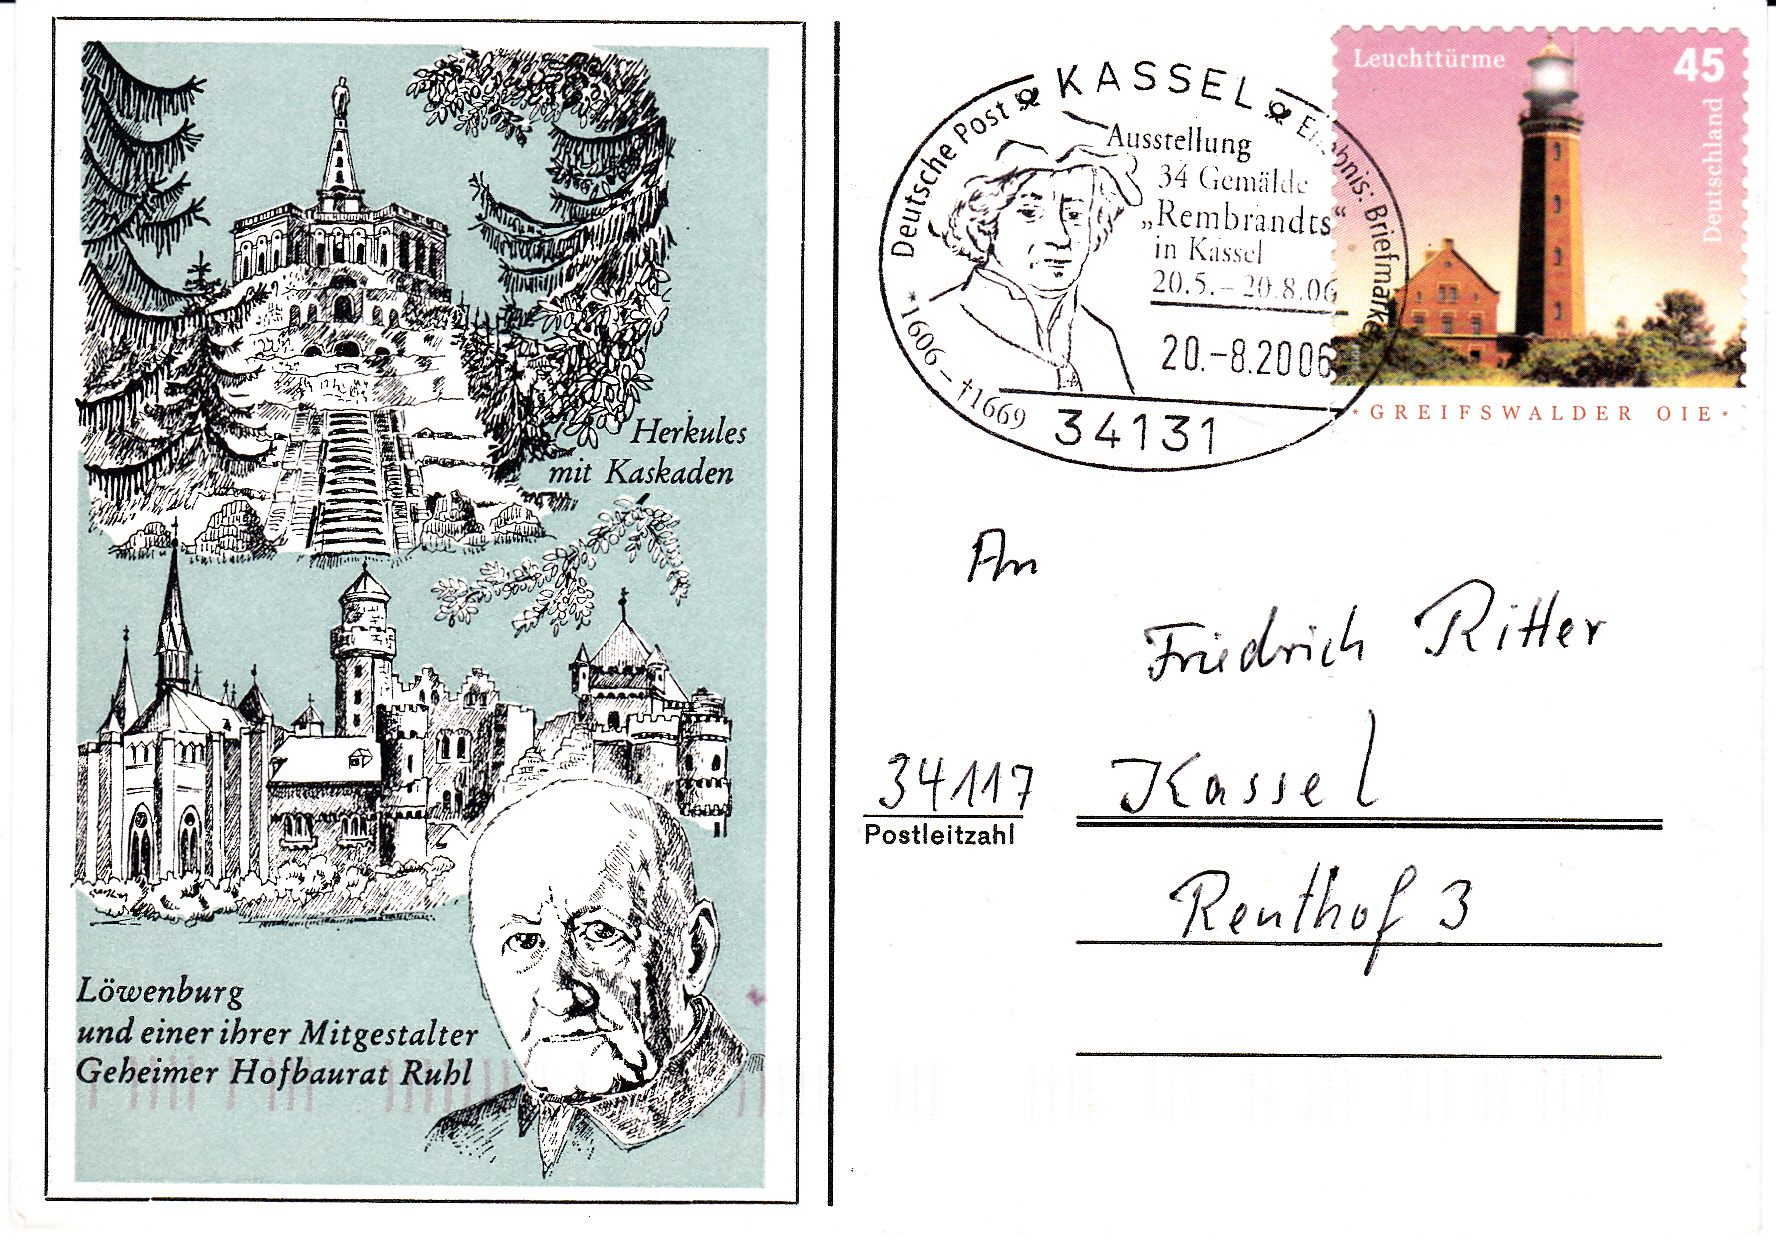 Herkules
mit Kaskaden
Löwenburg
und einer ihrer Mitgestalter
Geheimer Hofbaurat Ruhl
Deutsche Post KASSEL Erlebnis: Briefmarke
Ausstellung
34 Gemälde
„Rembrandts“
in Kassel
20.5.–20.8.06
20.-8.2006
*1606 – †1669
34131
Leuchttürme 45
Deutschland
*GREIFSWALDER OIE*
An
Friedrich Ritter
34117 Kassel
Postleitzahl
Renthof 3